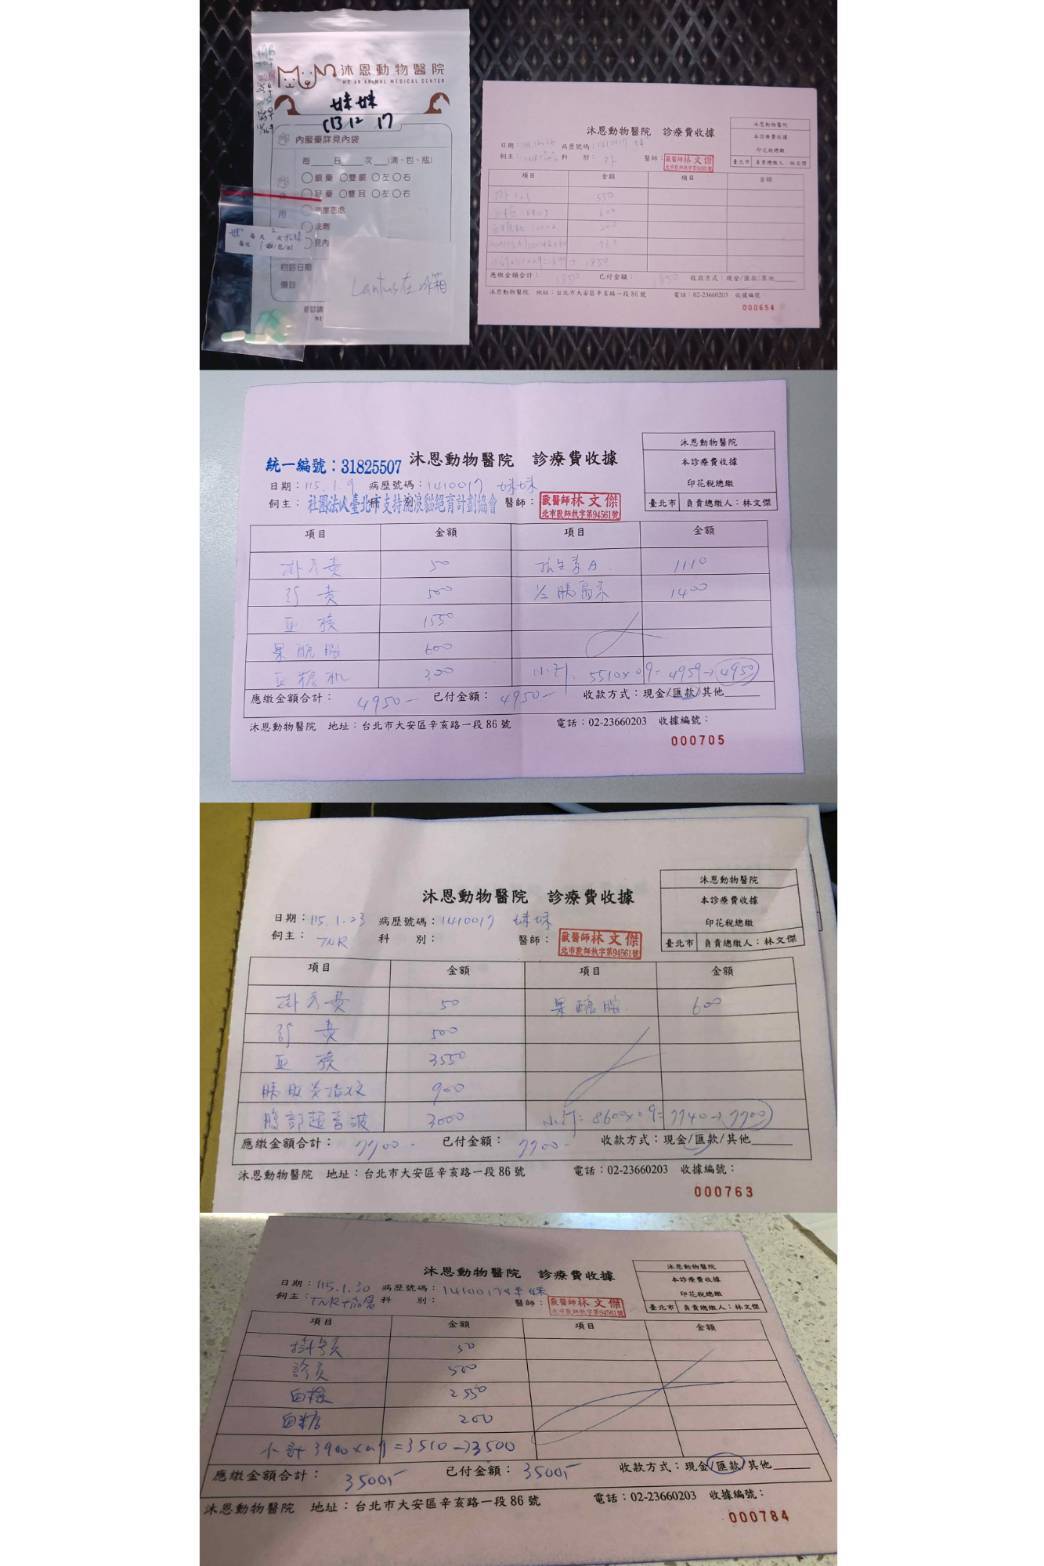 沐恩動物醫院
MU EN ANIMAL MEDICAL CENTER
妹妹
內服藥詳見內袋
每 日 次 (滴、包、瓶)
眼藥 雙眼 左 右
耳藥 雙耳 左 右
Lantus在冰箱
沐恩動物醫院 診療費收據
沐恩動物醫院
本診療費收據
印花稅總繳
臺北市 負責總繳人：林文傑
日期： 病歷號碼：
飼主： 科 別： 醫師： 獸醫師林文傑
項目 金額 項目 金額
應繳金額合計： 已付金額： 收款方式：現金/匯款/其他
沐恩動物醫院 地址：台北市大安區辛亥路一段86號 電話：02-23660203 收據編號
000654
統一編號：31825507 沐恩動物醫院 診療費收據
沐恩動物醫院
本診療費收據
印花稅總繳
臺北市 負責總繳人：林文傑
日期：115.1.9 病歷號碼：1410017 妹妹
飼主：社團法人臺北市支持流浪貓絕育計劃協會 醫師：獸醫師林文傑
北市獸師執字第94561號
項目 金額 項目 金額
掛號費 50 抗生素A 1110
診費 500 1/2胰島素 1400
血檢 1550
果醣胺 600
血糖机 300 小計 5510×0.9=4959→4950
應繳金額合計：4950- 已付金額：4950- 收款方式：現金/匯款/其他
沐恩動物醫院 地址：台北市大安區辛亥路一段86號 電話：02-23660203 收據編號：
000705
沐恩動物醫院 診療費收據
沐恩動物醫院
本診療費收據
印花稅總繳
臺北市 負責總繳人：林文傑
日期：115.1.23 病歷號碼：1410017 妹妹
飼主：TNR 科 別： 醫師：獸醫師林文傑
北市獸師執字第94561號
項目 金額 項目 金額
掛號費 50 果醣胺 600
診費 500
血檢 3550
胰臟炎指数 900
腹部超音波 3000 小計=8600×0.9=7740→7700
應繳金額合計：7700- 已付金額：7700- 收款方式：現金/匯款/其他
沐恩動物醫院 地址：台北市大安區辛亥路一段86號 電話：02-23660203 收據編號：
000763
沐恩動物醫院 診療費收據
沐恩動物醫院
本診療費收據
印花稅總繳
臺北市 負責總繳人：林文傑
日期：115.1.30 病歷號碼：1410017 妹妹
飼主：TNR 科 別： 醫師：獸醫師林文傑
項目 金額 項目 金額
掛號費 50
診費 500
血檢
血糖 200
小計 3900×0.9=3510→3500
應繳金額合計：3500 已付金額：3500 收款方式：現金/匯款/其他
沐恩動物醫院 地址：台北市大安區辛亥路一段86號 電話：02-23660203 收據編號：
000784